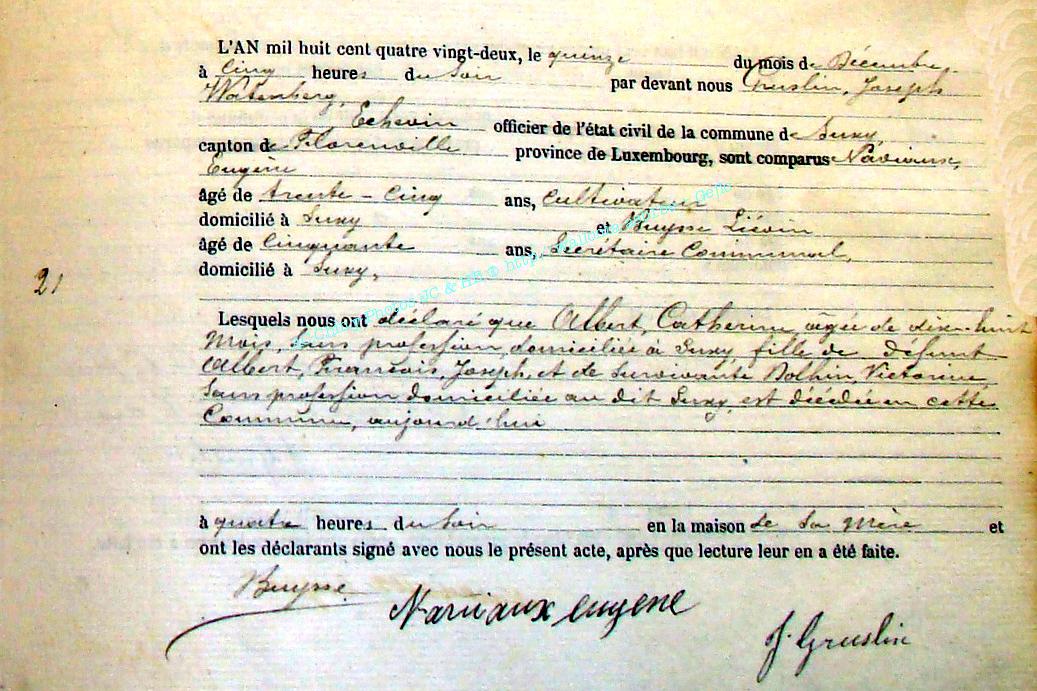 L'AN mil huit cent quatre vingt-deux, le quinze du mois de Décembre,
à cinq heures du soir par devant nous Gruslin, Joseph
Watenberg,
Echevin officier de l'état civil de la commune de Suxy,
canton de Florenville province de Luxembourg, sont comparus Naviaux,
Eugène
âgé de trente-cinq ans, cultivateur
domicilié à Suxy et Buysse Liévin
âgé de cinquante ans, Secrétaire Communal,
domicilié à Suxy,
21
Lesquels nous ont déclaré que Albert, Catherine, âgée de dix-huit
mois, sans profession, domiciliée à Suxy, fille de défunt
Albert, François Joseph, et de survivante Dolhin, Victorine,
sans profession domiciliée au dit Suxy, est décédée en cette
Commune, aujourd'hui
à quatre heures du soir en la maison de sa mère et
ont les déclarants signé avec nous le présent acte, après que lecture leur en a été faite.
Buysse
Naviaux eugene
J. Gruslin